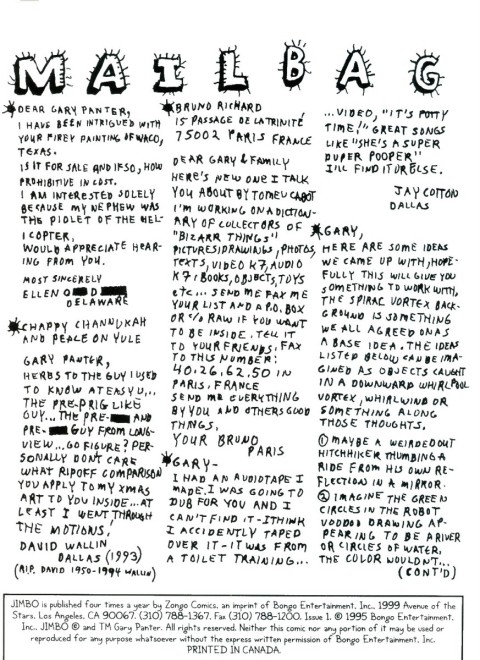 MAILBAG
DEAR GARY PANTER,
I HAVE BEEN INTRIGUED WITH
YOUR FIREY PAINTING OF WACO,
TEXAS.
IS IT FOR SALE AND IF SO, HOW
PROHIBITIVE IN COST.
I AM INTERESTED SOLELY
BECAUSE MY NEPHEW WAS
THE PIOLET OF THE HEL-
ICOPTER.
WOULD APPRECIATE HEAR-
ING FROM YOU.
MOST SINCERELY
ELLEN O D
DELAWARE
CHAPPY CHANNUKAH
AND PEACE ON YULE
GARY PANTER,
HERES TO THE GUY I USED
TO KNOW AT EASY U...
THE PRE-PRIG LIKE
GUY... THE PRE- AND
PRE- GUY FROM LONG-
VIEW... GO FIGURE? PER-
SONALLY DON'T CARE
WHAT RIPOFF COMPARISON
YOU APPLY TO MY XMAS
ART TO YOU INSIDE... AT
LEAST I WENT THROUGH
THE MOTIONS!
DAVID WALLIN
DALLAS (1993)
(R.I.P. DAVID 1950-1994 WALLIN)
BRUNO RICHARD
15 PASSAGE DE LA TRINITÉ
75002 PARIS FRANCE
DEAR GARY & FAMILY
HERE'S NEW ONE I TALK
YOU ABOUT BY TOMEU CABOT
I'M WORKING ON A DICTION-
ARY OF COLLECTORS OF
"BIZARR THINGS"
PICTURES, DRAWINGS, PHOTOS,
TEXTS, VIDEO K7, AUDIO
K7, BOOKS, OBJECTS, TOYS
etc... SEND ME FAX ME
YOUR LIST AND A P.O. BOX
OR c/o RAW IF YOU WANT
TO BE INSIDE. TELL IT
TO YOUR FRIENDS. FAX
TO THIS NUMBER:
40.26.62.50 IN
PARIS. FRANCE
SEND ME EVERYTHING
BY YOU AND OTHERS GOOD
THINGS.
YOUR BRUNO
PARIS
GARY-
I HAD AN AUDIOTAPE I
MADE. I WAS GOING TO
DUB FOR YOU AND I
CAN'T FIND IT-I THINK
I ACCIDENTLY TAPED
OVER IT-IT WAS FROM
A TOILET TRAINING...
...VIDEO, "IT'S POTTY
TIME!" GREAT SONGS
LIKE "SHE'S A SUPER
DUPER POOPER"
I'LL FIND IT OR ELSE.
JAY COTTON
DALLAS
GARY,
HERE ARE SOME IDEAS
WE CAME UP WITH, HOPE-
FULLY THIS WILL GIVE YOU
SOMETHING TO WORK WITH,
THE SPIRAL VORTEX BACK-
GROUND IS SOMETHING
WE ALL AGREED ON AS
A BASE IDEA. THE IDEAS
LISTED BELOW CAN BE IMA-
GINED AS OBJECTS CAUGHT
IN A DOWNWARD WHIRLPOOL
VORTEX, WHIRLWIND OR
SOMETHING ALONG
THOSE THOUGHTS.
① MAYBE A WEIRDED OUT
HITCHHIKER THUMBING A
RIDE FROM HIS OWN RE-
FLECTION IN A MIRROR.
② IMAGINE THE GREEN
CIRCLES IN THE ROBOT
VOODOO DRAWING AP-
PEARING TO BE A RIVER
OR CIRCLES OF WATER,
THE COLOR WOULDN'T...
(CONT'D)
JIMBO is published four times a year by Zongo Comics, an imprint of Bongo Entertainment, Inc., 1999 Avenue of the
Stars, Los Angeles, CA 90067. (310) 788-1367, Fax (310) 788-1200. Issue 1. © 1995 Bongo Entertainment,
Inc., JIMBO ® and TM Gary Panter. All rights reserved. Neither this comic nor any portion of it may be used or
reproduced for any purpose whatsoever without the express written permission of Bongo Entertainment, Inc.
PRINTED IN CANADA.